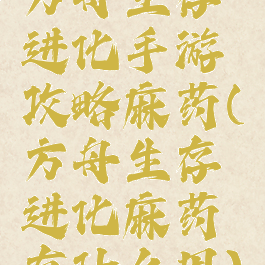 方舟生存
进化手游
攻略麻药(
方舟生存
进化麻药